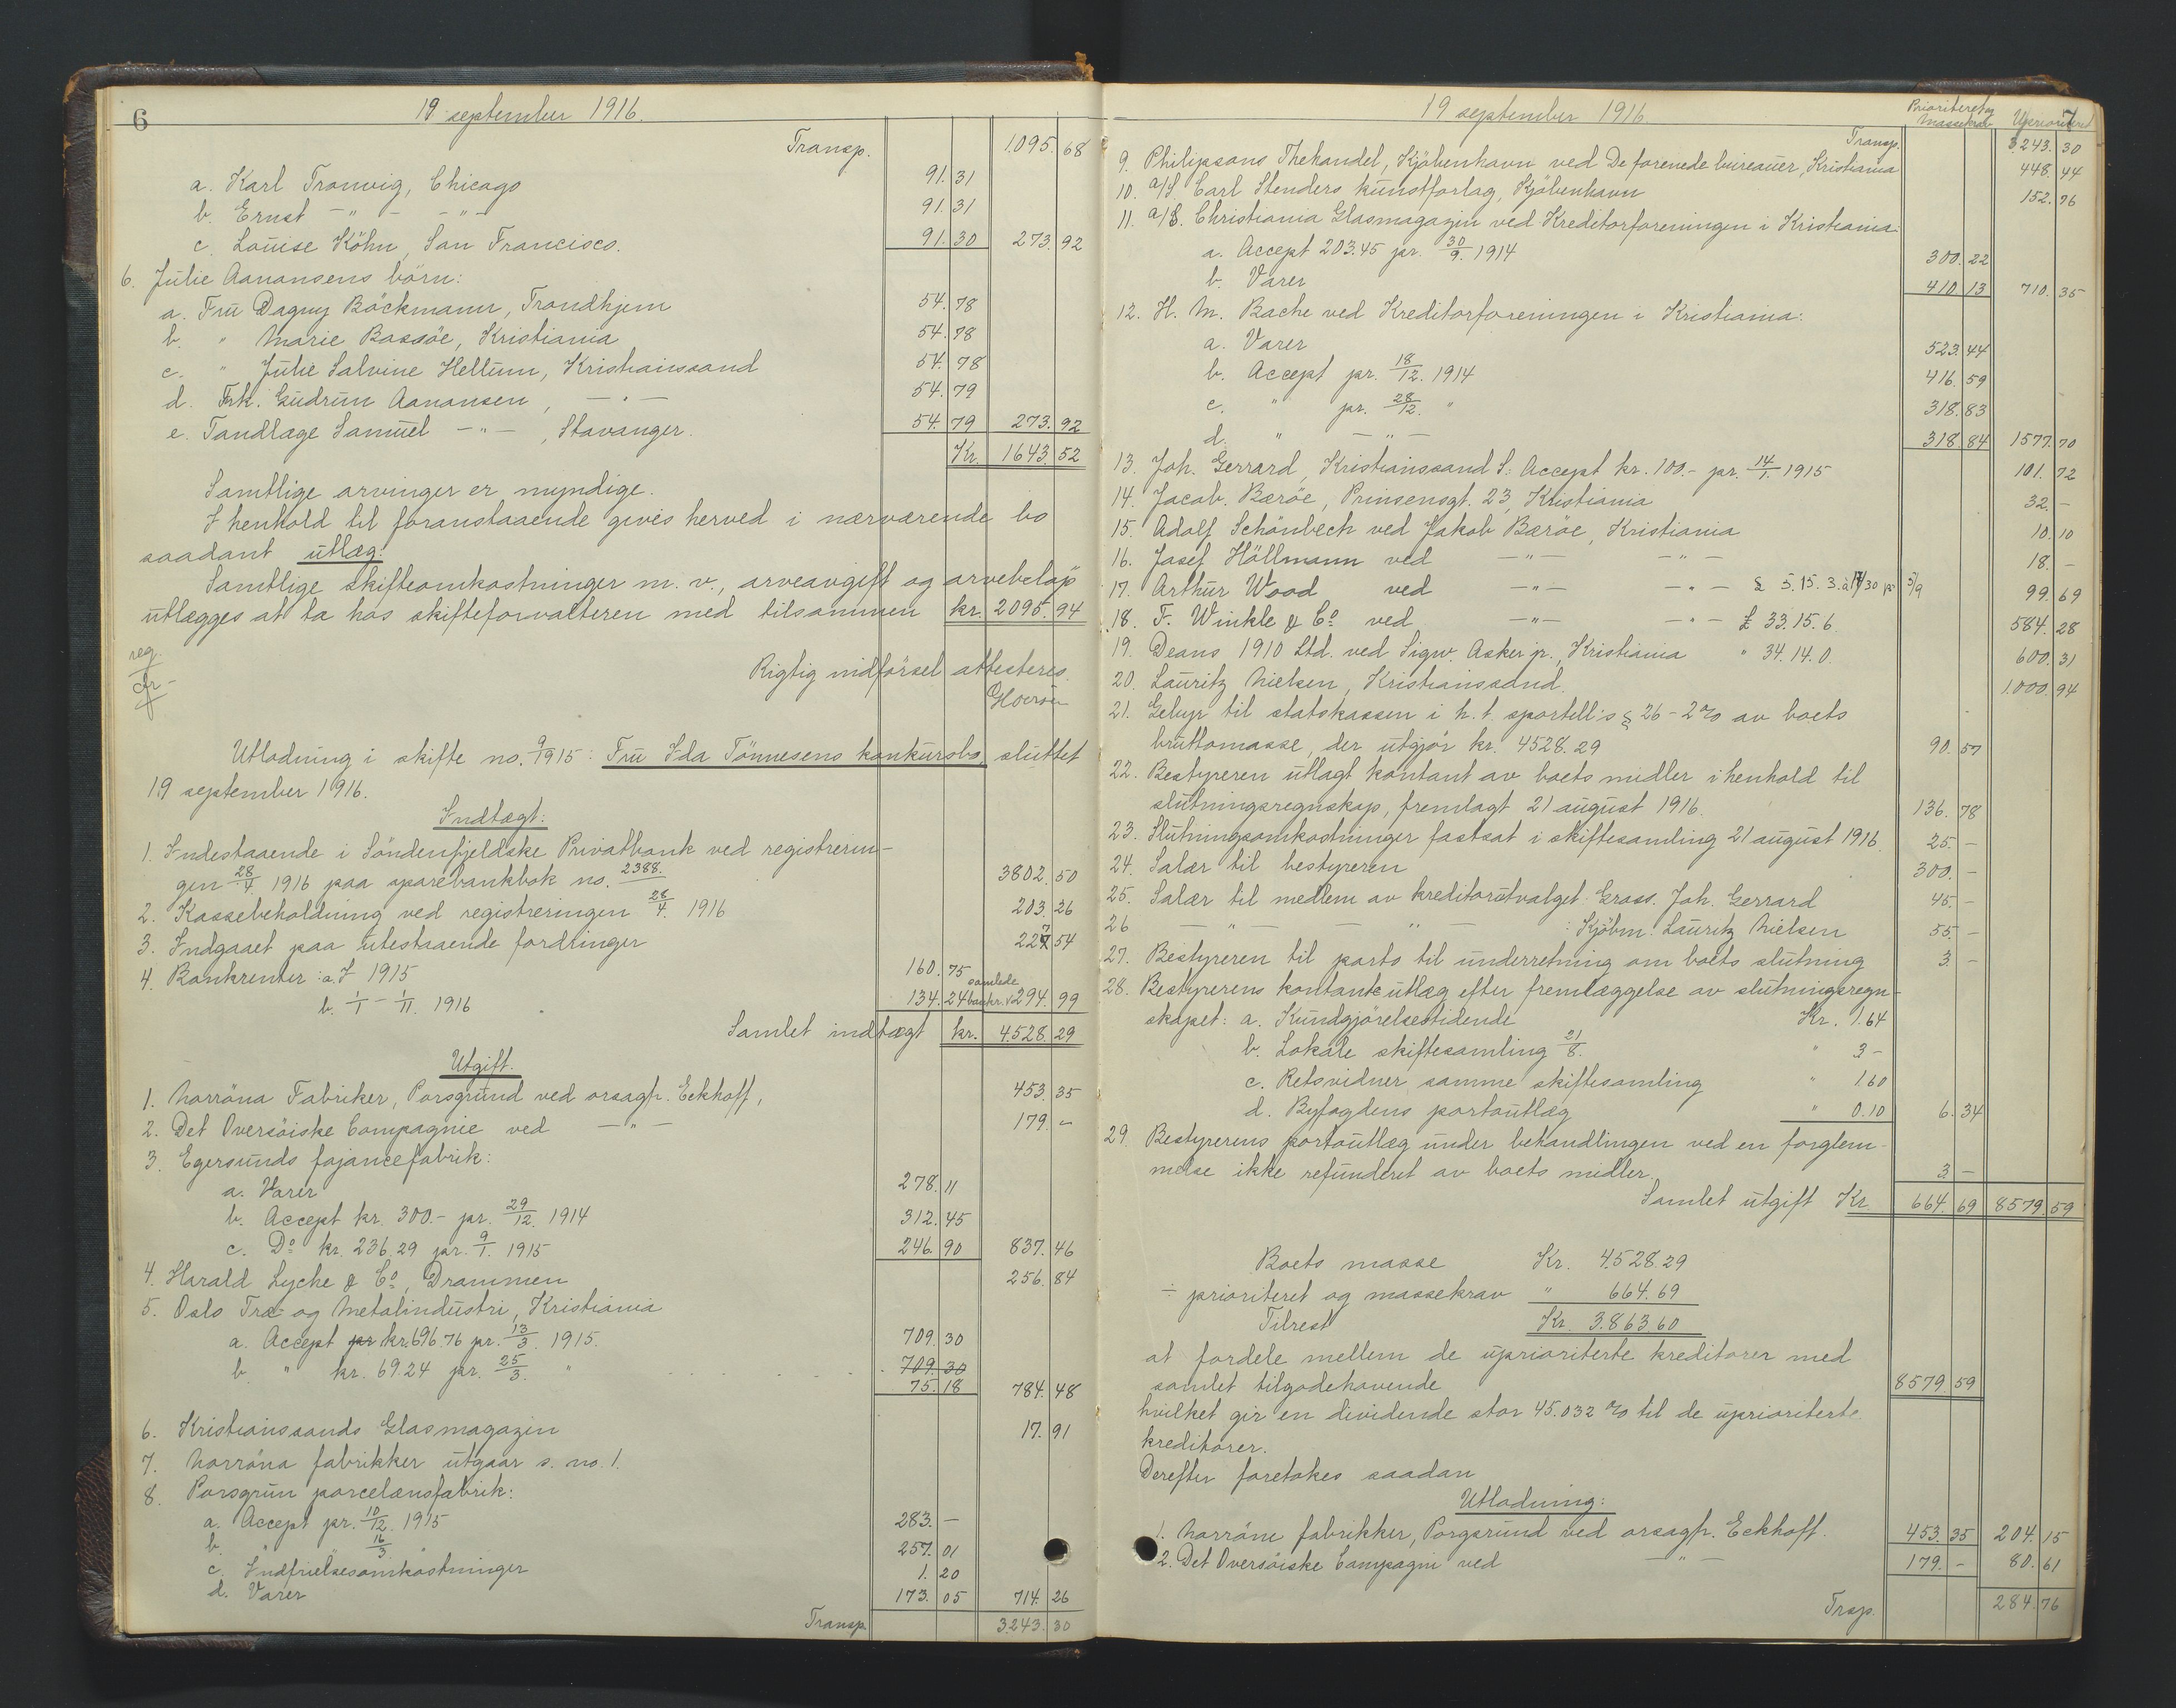 6
19 september 1916.
Transp. 1095. 68
a. Karl Tronvig, Chicago 91. 31
b. Ernst -"- -"- 91. 31
c. Louise Köhn, San Francisco. 91. 30 273. 92
6. Julie Aanansens börn:
a. Fru Dagny Böckmann, Trondhjem 54. 78
b. " Marie Bassöe, Kristiania 54. 78
c. " Julie Salvine Hellum, Kristianssand 54. 78
d. Frk. Gudrun Aanansen, -"- 54. 79
e. Tandlæge Samuel -"-, Stavanger. 54. 79 273. 92
Kr. 1643. 52
Samtlige arvinger er myndige.
I henhold til foranstaaende gives herved i nærværende bo
saadant utlæg:
Samtlige skifteomkostninger m. v., arveavgift og arvebelöp
utlægges at ta hos skifteforvalteren med tilsammen kr. 2095. 94
reg.
Rigtig indförsel attesteres.
Utlodning i skifte no. 9/1915: Fru Ida Tönnesens konkursbo, sluttet
19 september 1916.
Indtægt:
1. Indestaaende i Söndenfjeldske Privatbank ved registrerin-
gen 28/4. 1916 paa sparebankbok no. 2388. 3802. 50
2. Kassebeholdning ved registreringen 28/4. 1916 203. 26
3. Indgaaet paa utestaaende fordringer 227. 54
4. Bankrenter: a. I 1915 160. 75
samlede
b. 1/1 - 1/11. 1916 134. 24 bankr. 294. 99
Samlet indtægt kr. 4528. 29
Utgift.
1. Norröna Fabriker, Porsgrund ved orsagf. Eckhoff, 453. 35
2. Det Oversöiske Compagnie ved -"- 179. -
3. Egersunds fajancefabrik:
a. Varer 278. 11
b. Accept kr. 300.- pr. 29/12. 1914 312. 45
c. Do kr. 236.29 pr. 9/1. 1915 246. 90 837. 46
4. Harald Lyche & Co, Drammen 256. 84
5. Oslo Træ- og Metalindustri, Kristiania
a. Accept pr kr. 696.76 pr. 13/3. 1915. 709. 30
b. " kr. 69.24 pr. 25/3. " 709. 30
75. 18 784. 48
6. Kristianssands Glasmagazin 17. 91
7. Norröna fabrikker utgaar s. no. 1.
8. Porsgrun porcelænsfabrik:
a. Accept pr. 10/12. 1915 283. -
b. " 16/3. 257. 01
c. Indfrielsesomkostninger 1. 20
d. Varer 173. 05 714. 26
Transp. 3243. 30
19 september 1916
7
Prioritert og Uprioritert
Massekrav
Transp. 3.243. 30
9. Philipsons Thehandel, Kjöbenhavn ved De forenede bureauer, Kristiania 448. 44
10. A/S. Carl Stenders kunstforlag, Kjöbenhavn 152. 76
11. A/S. Christiania Glasmagazin ved Kreditorforeningen i Kristiania:
a. Accept 203.45 pr. 30/9. 1914 300. 22
b. Varer 410. 13 710. 35
12. H. M. Bache ved Kreditorforeningen i Kristiania:
a. Varer 523. 44
b. Accept pr. 18/12. 1914 416. 59
c. " pr. 28/12. " 318. 83
d. " -"- 318. 84 1577. 70
13. Joh. Gerrard, Kristianssand S: Accept kr. 100.- pr. 14/1. 1915 101. 72
14. Jacob. Bæröe, Prinsensgt. 23, Kristiania 32. -
15. Adolf Schönbech ved Jakob Bæröe, Kristiania 10. 10
16. Josef Höllmann ved -"- -"- 18. -
17. Arthur Wood ved -"- -"- £ 5.15.3. 99. 69
18. F. Winkle & Co ved -"- -"- £ 33.15.6. 584. 28
19. Deans 1910 Ltd. ved Sigw. Asker jr., Kristiania " 34.14.0. 600. 31
20. Lauritz Nielsen, Kristianssand. 1.000. 94
21. Gebyr til statskassen i h. t. sportell:s § 26 - 2% av boets
bruttomasse, der utgjör kr. 4528.29 90. 57
22. Bestyreren utlagt kontant av boets midler i henhold til
slutningsregnskap, fremlagt 21 august 1916. 136. 78
23. Slutningsomkostninger fastsat i skiftesamling 21 august 1916. 25. -
24. Salær til bestyreren 300. -
25. Salær til medlem av kreditorutvalget: Gross. Joh. Gerrard 45. -
26 -"- -"- : Kjöbm. Lauritz Nielsen 55. -
27. Bestyreren til porto til underretning om boets slutning 3. -
28. Bestyrerens kontante utlæg efter fremlæggelse av slutningsregn-
skapet: a. Kundgjörelsestidende Kr. 1.64
b. Lokale skiftesamling 21/8. " 3 -
c. Retsvidner samme skiftesamling " 1.60
d. Byfogdens portoutlæg " 0.10 6. 34
29. Bestyrerens portoutlæg under behandlingen ved en forglem-
melse ikke refunderet av boets midler. 3. -
Samlet utgift Kr. 664. 69 8579. 59
Boets masse Kr. 4.528.29
÷ prioritert og massekrav " 664.69
Tilrest Kr. 3.863.60
at fordele mellem de uprioriterte kreditorer med
samlet tilgodehavende 8579. 59
hvilket gir en dividende stor 45.032 % til de uprioriterte
kreditorer.
Derefter foretokes saadan
Utlodning:
1. Norröne fabrikker, Porgsrund ved orsagf. Eckhoff. 453. 35 204. 15
2. Det Oversöiske Campagni ved -"- 179. - 80. 61
Trsp. 284. 76